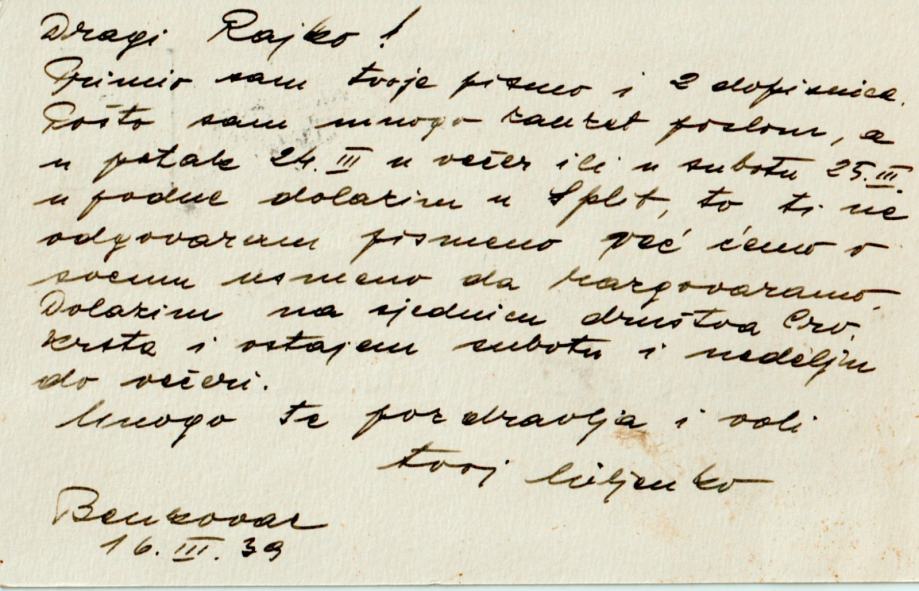 Dragi Rajko!
Primio sam tvoje pismo i 2 dopisnice.
Pošto sam mnogo zauzet poslom, a
u petak 24. III u večer ili u subotu 25. III.
u podne dolazim u Split, to ti ne
odgovaram pismeno već ćemo o
svemu usmeno da razgovaramo.
Dolazim na sjednicu društva Crv.
Krsta i ostajem subotu i nedelju
do večeri.
Mnogo te pozdravlja i voli
tvoj Miljenko
Benkovac
16. III. 39